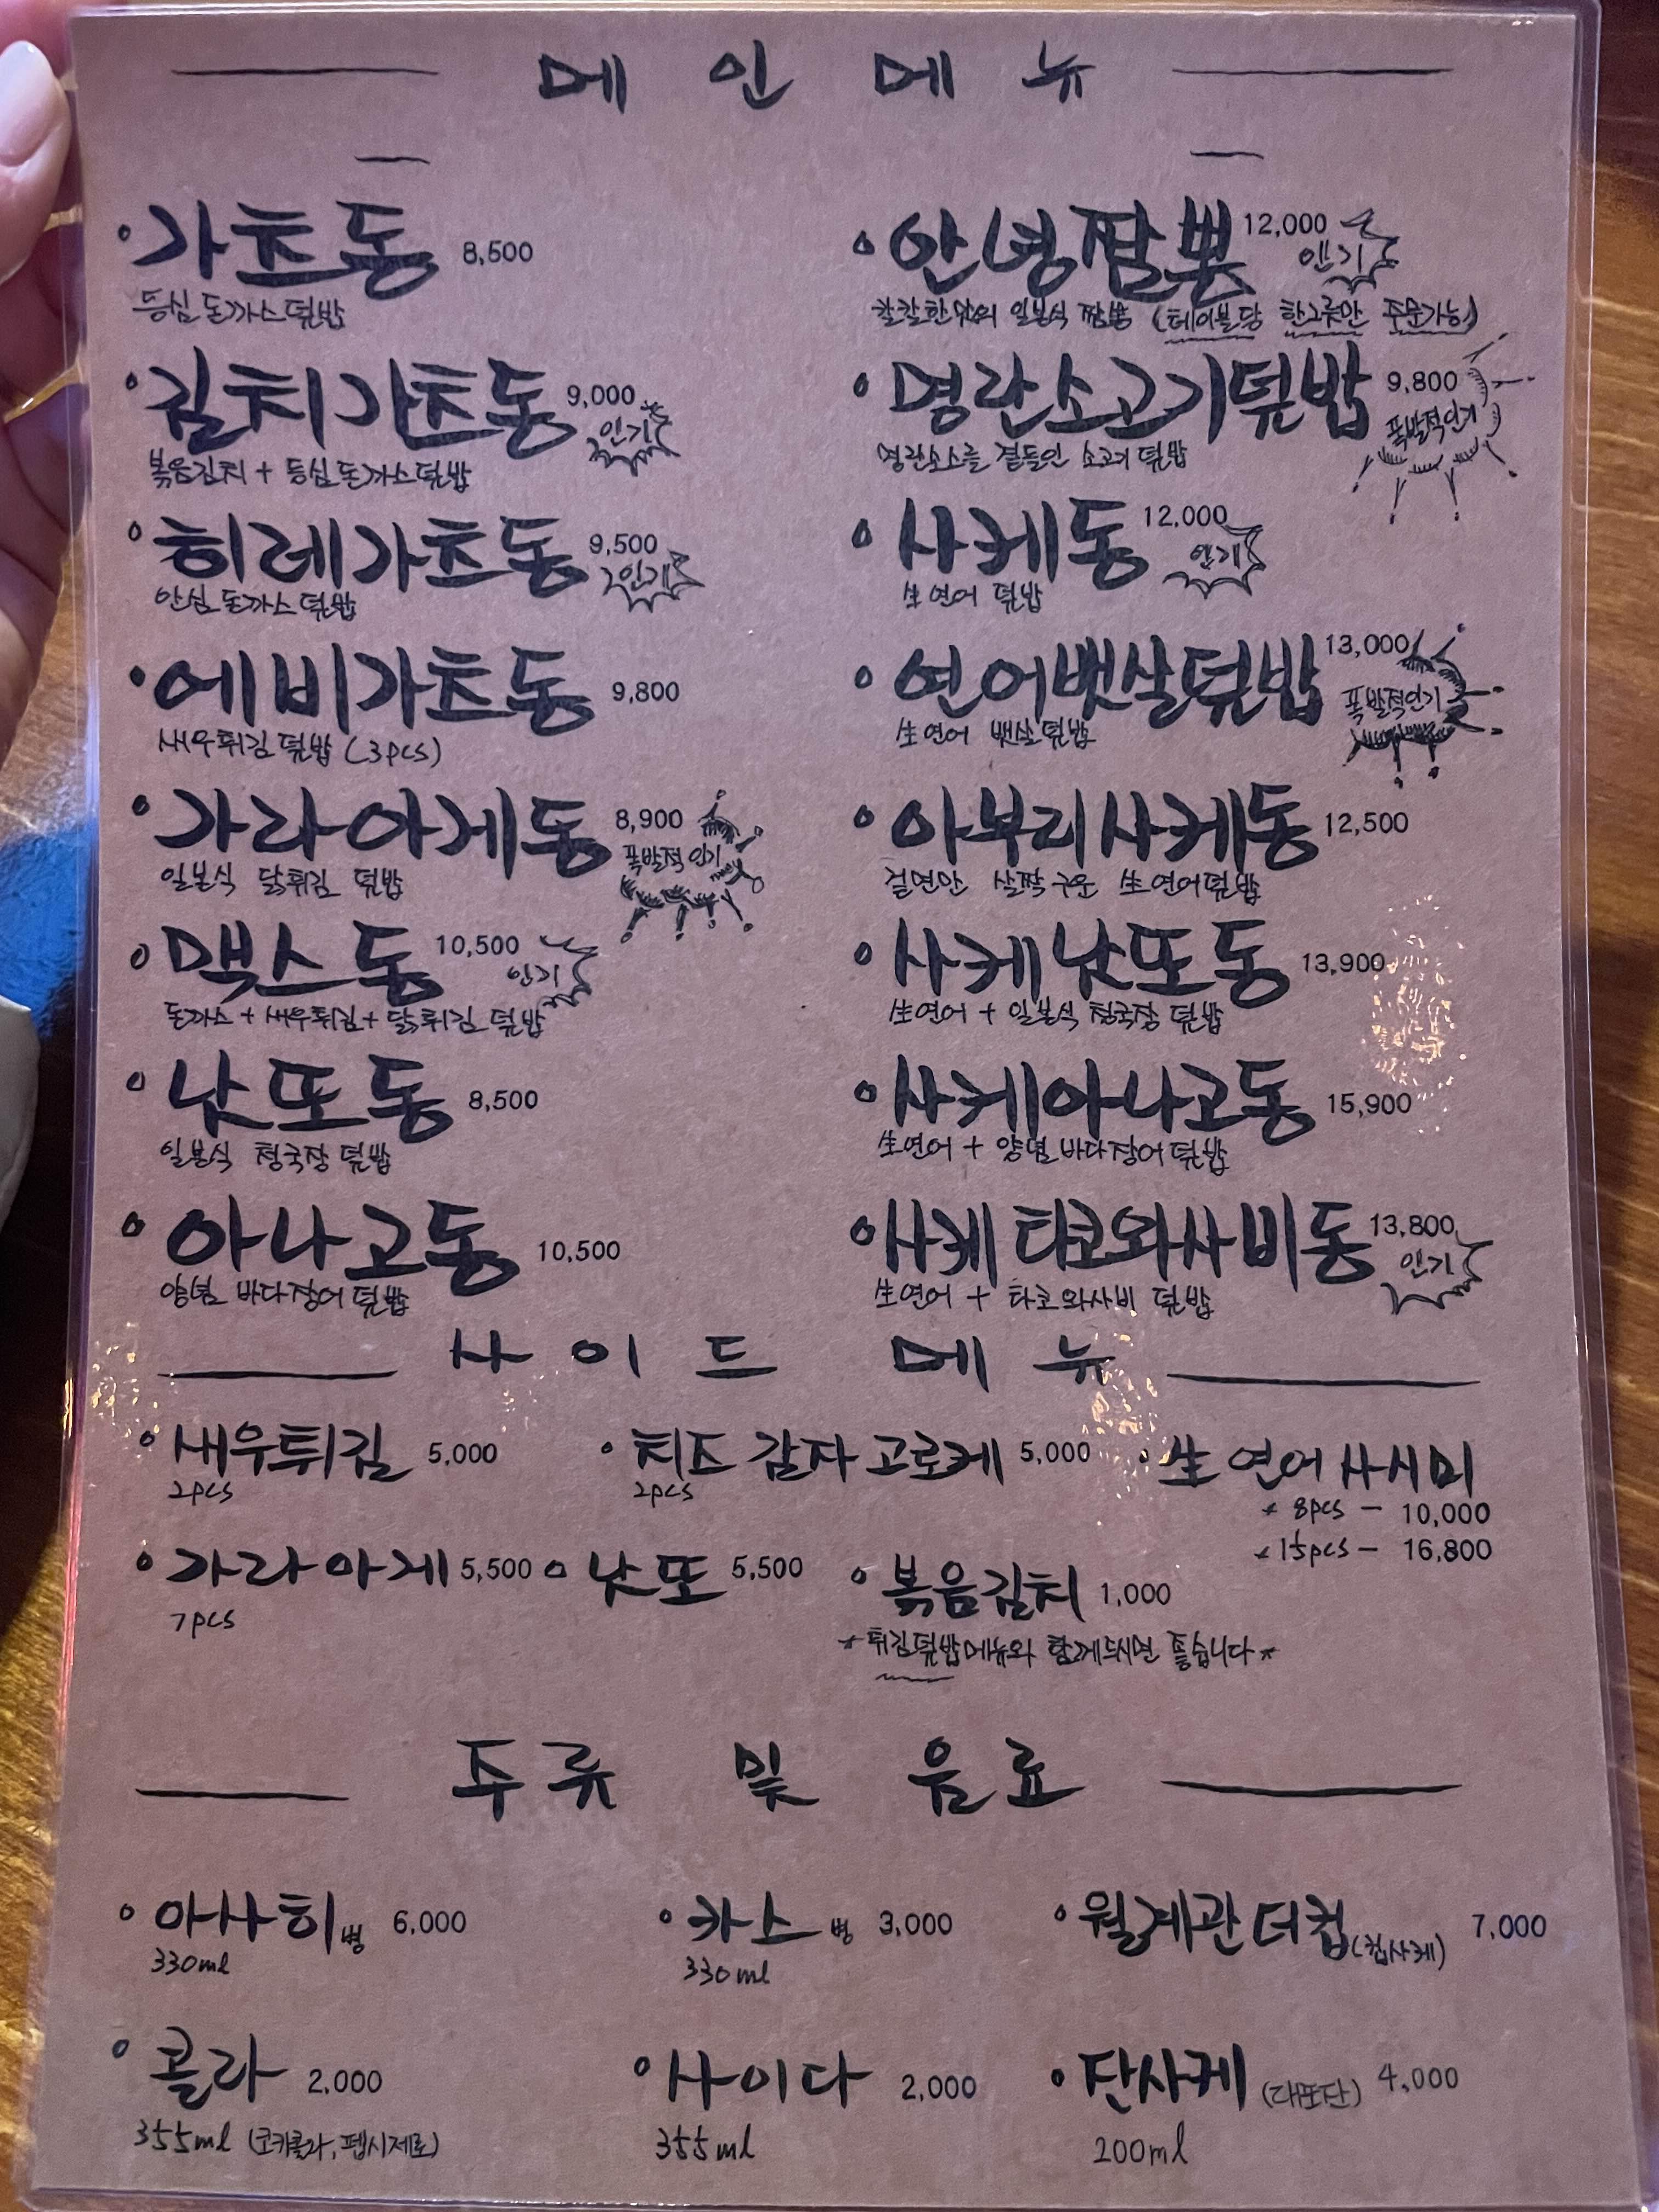 메인메뉴
가츠동 8,500
등심 돈까스 덮밥
김치가츠동 9,000 인기
볶음김치 + 등심 돈까스 덮밥
히레가츠동 9,500 인기
안심 돈까스 덮밥
에비가츠동 9,800
새우튀김 덮밥 (3pcs)
가라아게동 8,900 폭발적 인기
일본식 닭튀김 덮밥
맥스동 10,500 인기
돈까스 + 새우튀김 + 닭튀김 덮밥
낫또동 8,500
일본식 청국장 덮밥
아나고동 10,500
양념 바다장어 덮밥
안녕짬뽕 12,000 인기
칼칼한 맛의 일본식 짬뽕 (테이블당 한그릇만 주문가능)
명란소고기덮밥 9,800 폭발적인기
명란소스를 곁들인 소고기 덮밥
사케동 12,000 인기
生연어 덮밥
연어뱃살덮밥 13,000 폭발적인기
生연어 뱃살덮밥
아부리사케동 12,500
겉면만 살짝 구운 生연어덮밥
사케낫또동 13,900
生연어 + 일본식 청국장 덮밥
사케아나고동 15,900
生연어 + 양념 바다장어 덮밥
사케타코와사비동 13,800 인기
生연어 + 타코와사비 덮밥
사이드 메뉴
새우튀김 5,000
2pcs
치즈 감자 고로케 5,000
2pcs
生연어사시미
* 8pcs - 10,000
* 15pcs - 16,800
가라아게 5,500
7pcs
낫또 5,500
볶음김치 1,000
* 튀김덮밥메뉴와 함께드시면 좋습니다 *
주류 및 음료
아사히 병 6,000
330ml
카스 병 3,000
330ml
월계관 더컵 (컵사케) 7,000
콜라 2,000
355ml (코카콜라, 펩시제로)
사이다 2,000
355ml
단사케 (대포단) 4,000
200ml